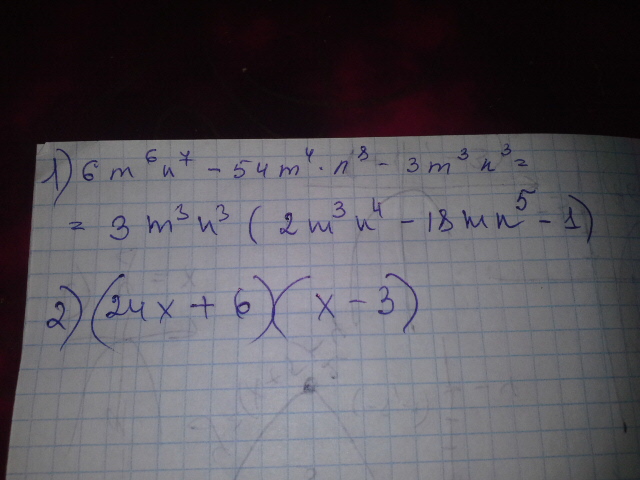 1) 6m⁶n⁷ - 54m⁴·n⁸ - 3m³n³ =
= 3m³n³ (2m³n⁴ - 18mn⁵ - 1)
2) (24x + 6)(x - 3)